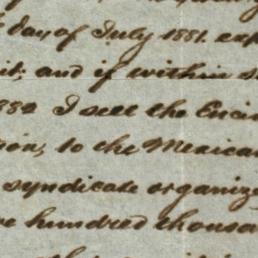 day of July 1881. exp
it; and if within s
882 I sell the Encin
ion, to the Mexica
syndicate organize
e hundred thousa